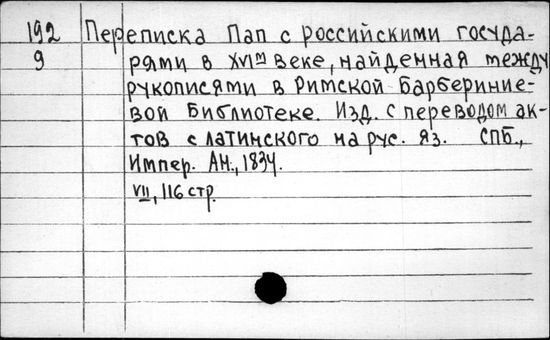 192 Переписка Пап с российскими госуда-
9 рями в XVIм веке, найденная между
рукописями в Римской Барбериние-
вой Библиотеке. Изд. с переводом ак-
тов с латинского на рус. яз. СПБ.,
Импер. АН., 1834.
VII, 116 стр.